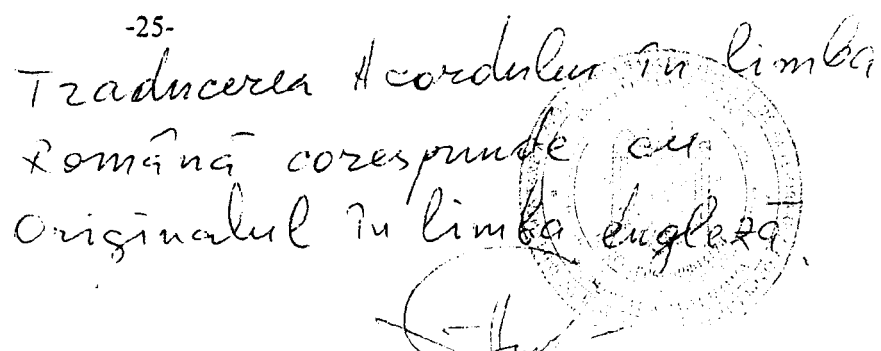 -25-
Traducerea Acordului în limba
Română corespunde cu
Originalul în limba engleză.